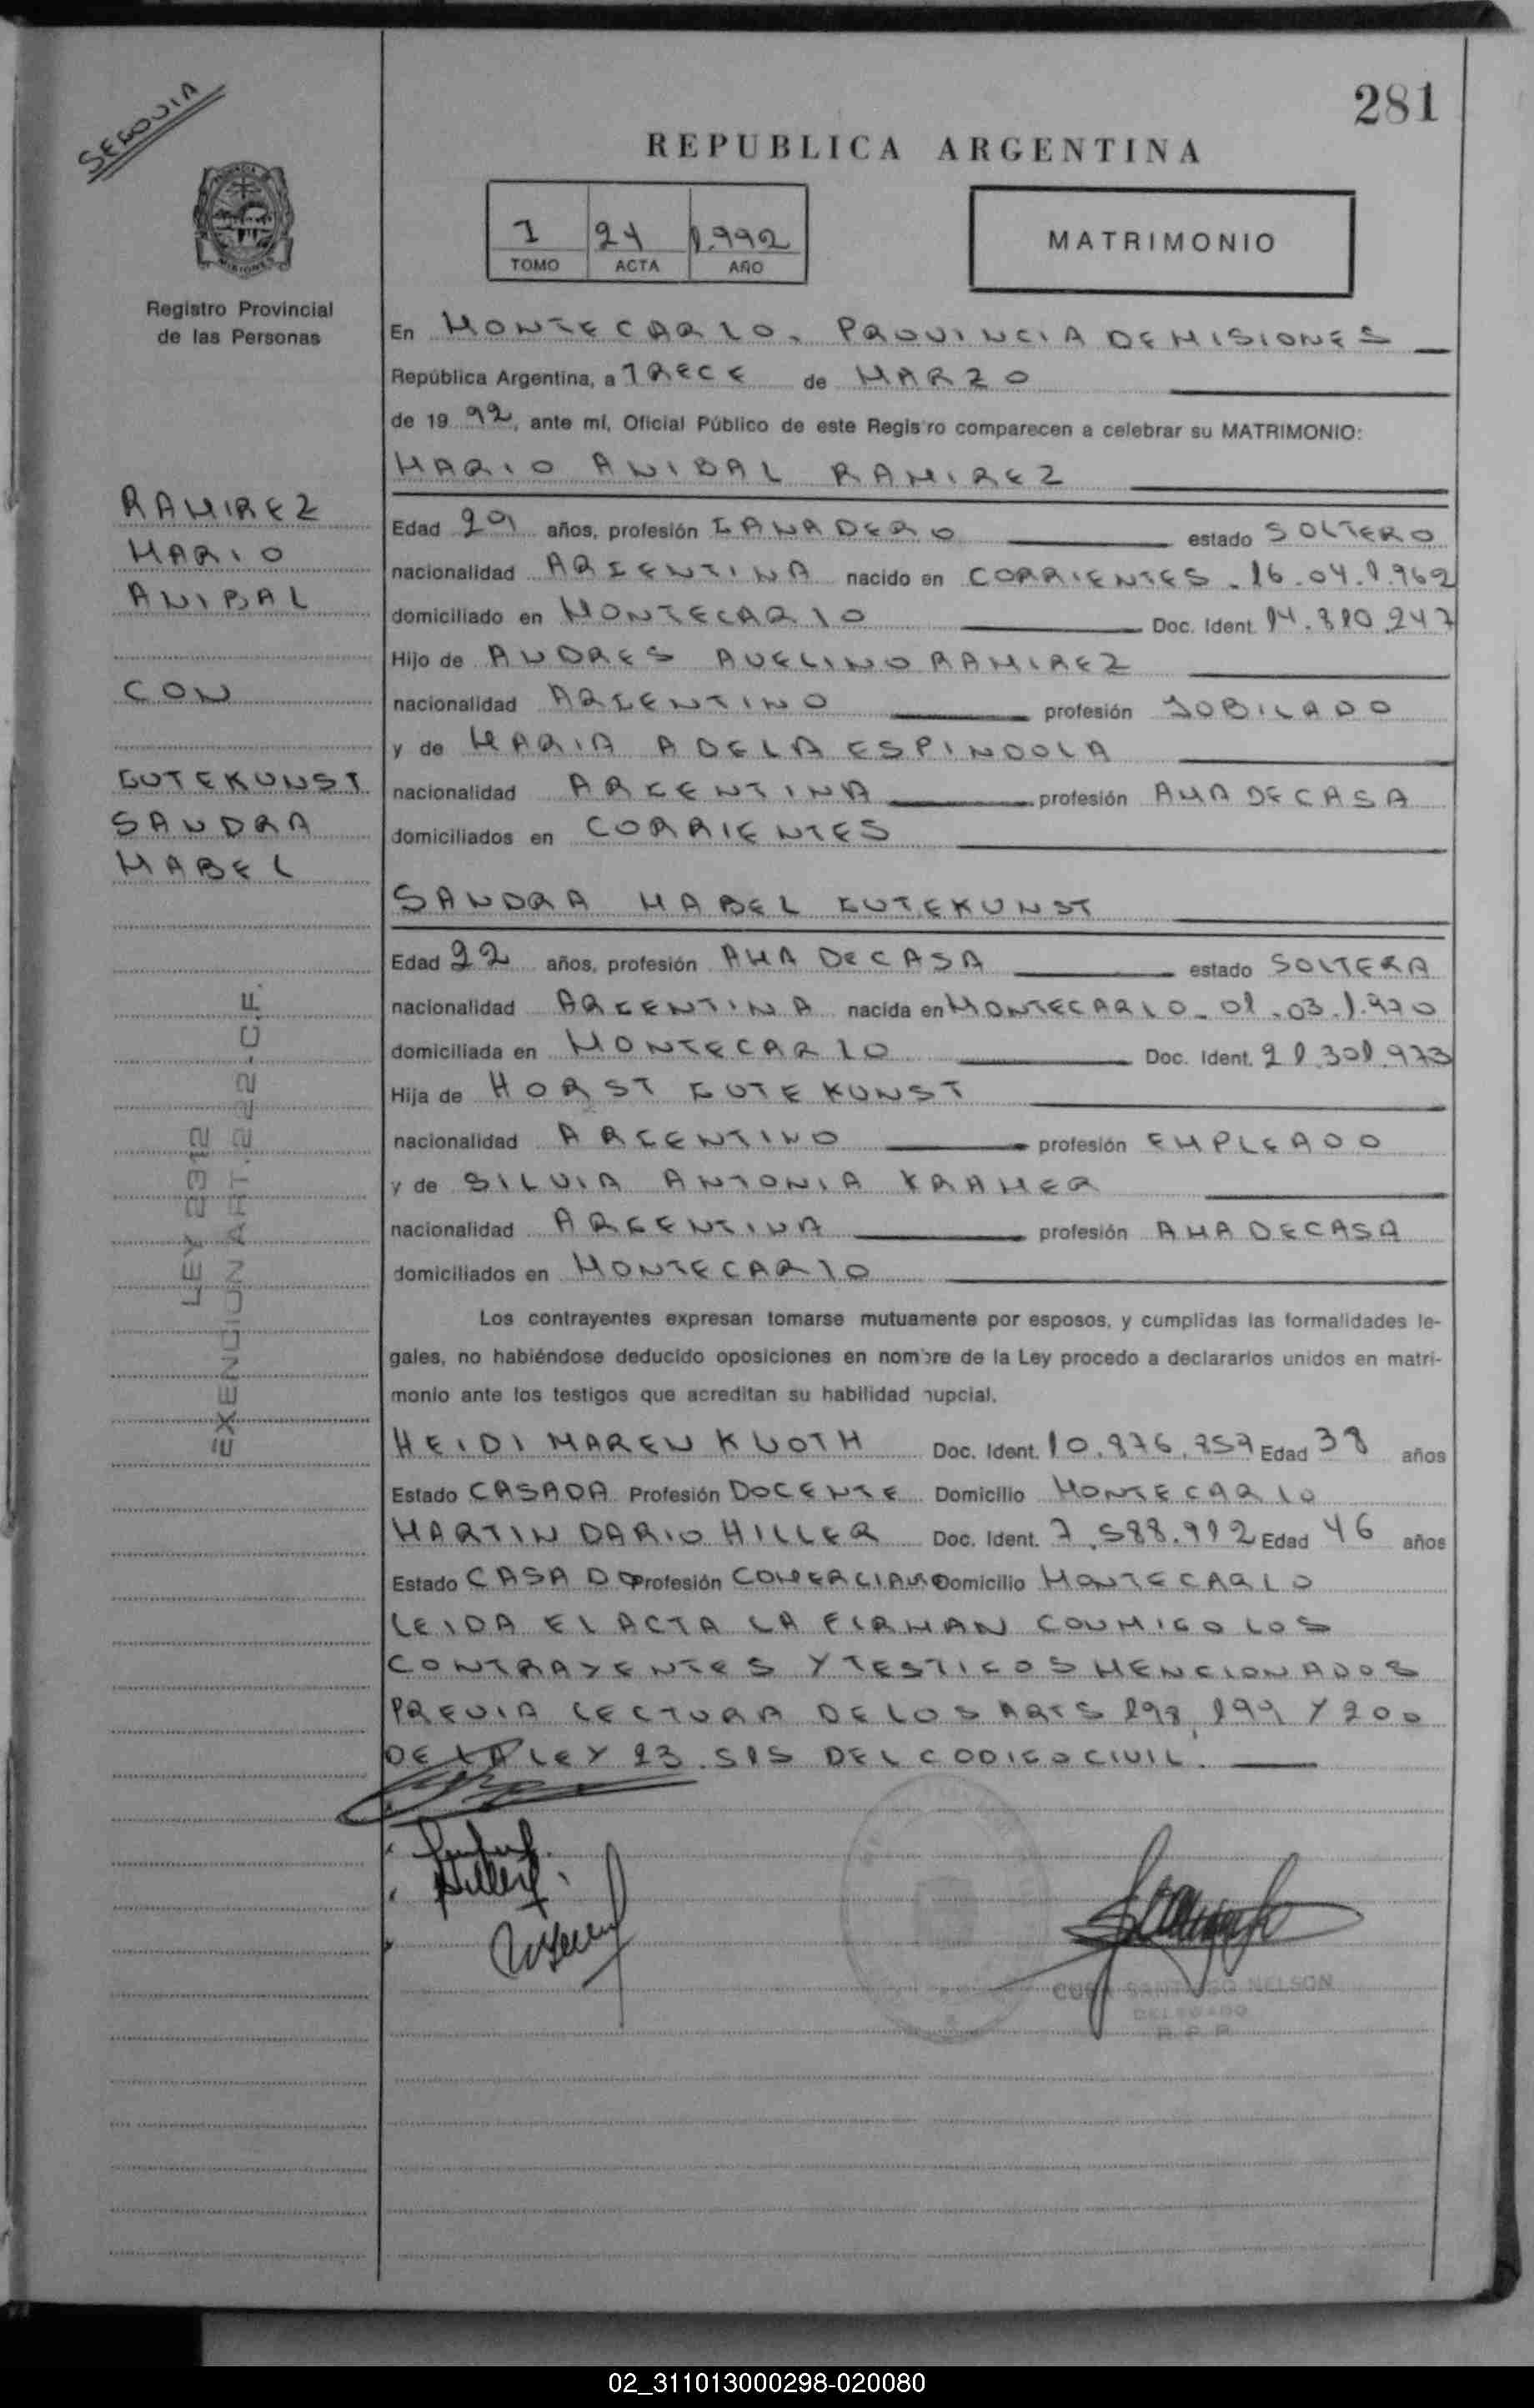 281
SEGOVIA
REPUBLICA ARGENTINA
1 24 1.992
TOMO ACTA AÑO
MATRIMONIO
MISIONES
Registro Provincial
de las Personas
En MONTECARLO, PROVINCIA DE MISIONES
República Argentina, a TRECE de MARZO
de 19 92, ante mí, Oficial Público de este Registro comparecen a celebrar su MATRIMONIO:
MARIO ANIBAL RAMIREZ
RAMIREZ
MARIO
ANIBAL
CON
GUTEKUNST
SANDRA
MABEL
Edad 29 años, profesión GANADERO estado SOLTERO
nacionalidad ARGENTINA nacido en CORRIENTES - 16.04.1.962
domiciliado en MONTECARLO Doc. Ident. 14.810.247
Hijo de ANDRES AVELINO RAMIREZ
nacionalidad ARGENTINO profesión JUBILADO
y de MARIA ADELA ESPINDOLA
nacionalidad ARGENTINA profesión AMA DE CASA
domiciliados en CORRIENTES
SANDRA MABEL GUTEKUNST
Edad 22 años, profesión AMA DE CASA estado SOLTERA
nacionalidad ARGENTINA nacida en MONTECARLO - 01.03.1.970
domiciliada en MONTECARLO Doc. Ident. 21.301.973
Hija de HORST GUTEKUNST
nacionalidad ARGENTINO profesión EMPLEADO
y de SILVIA ANTONIA KRAMER
nacionalidad ARGENTINA profesión AMA DE CASA
domiciliados en MONTECARLO
LEY 2312
EXENCION ART. 222 - C.F.
Los contrayentes expresan tomarse mutuamente por esposos, y cumplidas las formalidades le-
gales, no habiéndose deducido oposiciones en nombre de la Ley procedo a declararlos unidos en matri-
monio ante los testigos que acreditan su habilidad nupcial.
HEIDI MAREN KUOTH Doc. Ident. 10.876.857 Edad 38 años
Estado CASADA Profesión DOCENTE Domicilio MONTECARLO
MARTIN DARIO HILLER Doc. Ident. 7.588.912 Edad 46 años
Estado CASADO Profesión COMERCIANTE Domicilio MONTECARLO
LEIDA EL ACTA LA FIRMAN CONMIGO LOS
CONTRAYENTES Y TESTIGOS MENCIONADOS
PREVIA LECTURA DE LOS ARTS 198, 199 Y 200
DE LA LEY 23.515 DEL CODIGO CIVIL.
SANTIAGO NELSON
DELEGADO
R. P. P.
02_311013000298-020080